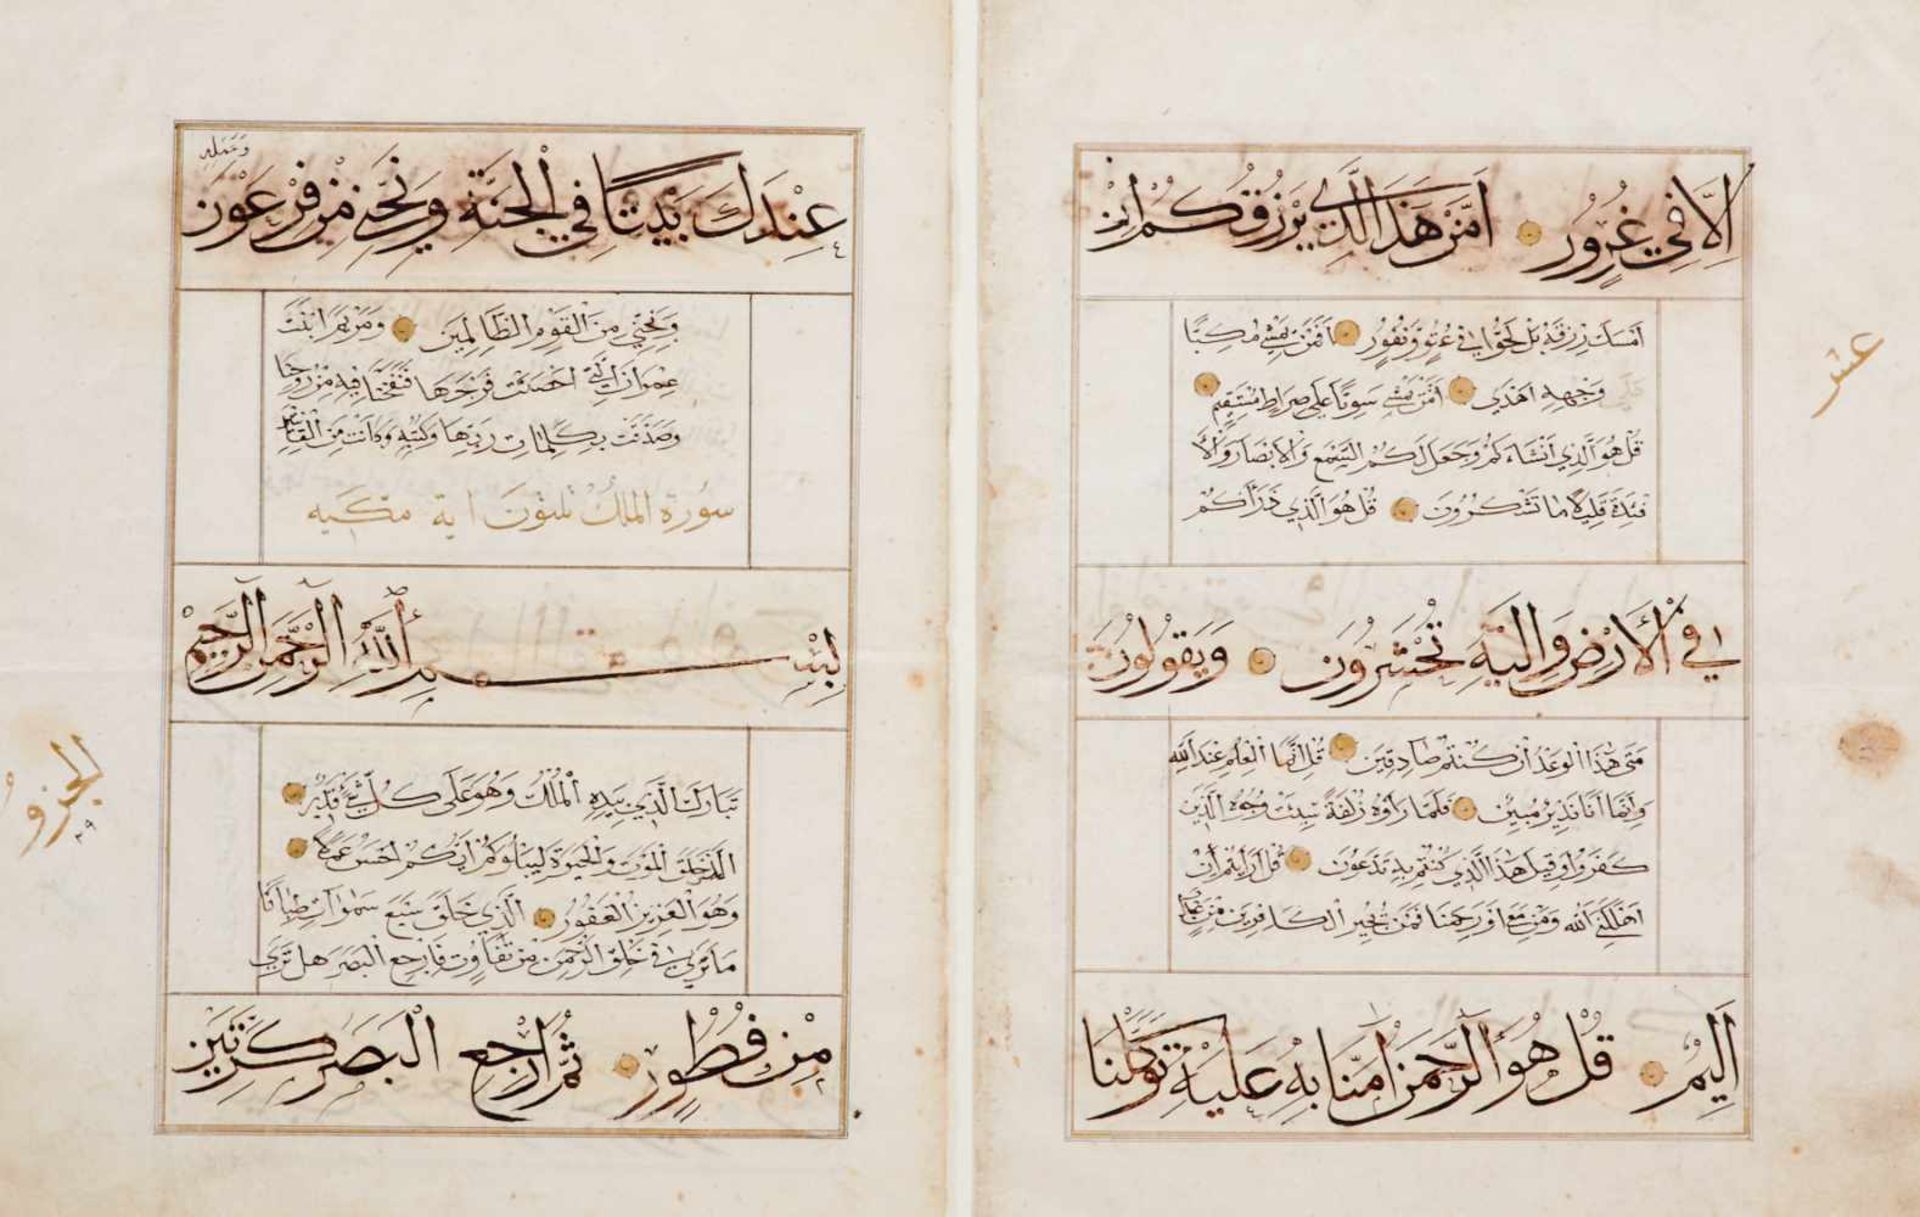 الا في غرور امن هذا الذي يرزقكم ان
امسك رزقه بل لجوا في عتو ونفور افمن يمشي مكبا
على وجهه اهدى امن يمشي سويا على صراط مستقيم
قل هو الذي انشاكم وجعل لكم السمع والابصار والا
فئدة قليلا ما تشكرون قل هو الذي ذراكم
في الارض واليه تحشرون ويقولون
متى هذا الوعد ان كنتم صادقين قل انما العلم عند الله
وانما انا نذير مبين فلما راوه زلفة سيئت وجوه الذين
كفروا وقيل هذا الذي كنتم به تدعون قل ارايتم ان
اهلكني الله ومن معي او رحمنا فمن يجير الكافرين من عذاب
اليم قل هو الرحمن امنا به وعليه توكلنا
عشر
وعمله
عندك بيتا في الجنة ونجني من فرعون
ونجني من القوم الظالمين ومريم ابنت
عمران التي احصنت فرجها فنفخنا فيه من روحنا
وصدقت بكلمات ربها وكتبه وكانت من القانتين
سورة الملك ثلثون اية مكيه
بسم الله الرحمن الرحيم
تبارك الذي بيده الملك وهو على كل شيء قدير
الذي خلق الموت والحيوة ليبلوكم ايكم احسن عملا
وهو العزيز الغفور الذي خلق سبع سموات طباقا
ما ترى في خلق الرحمن من تفاوت فارجع البصر هل ترى
من فطور ثم ارجع البصر كرتين
الجزو
٢٩